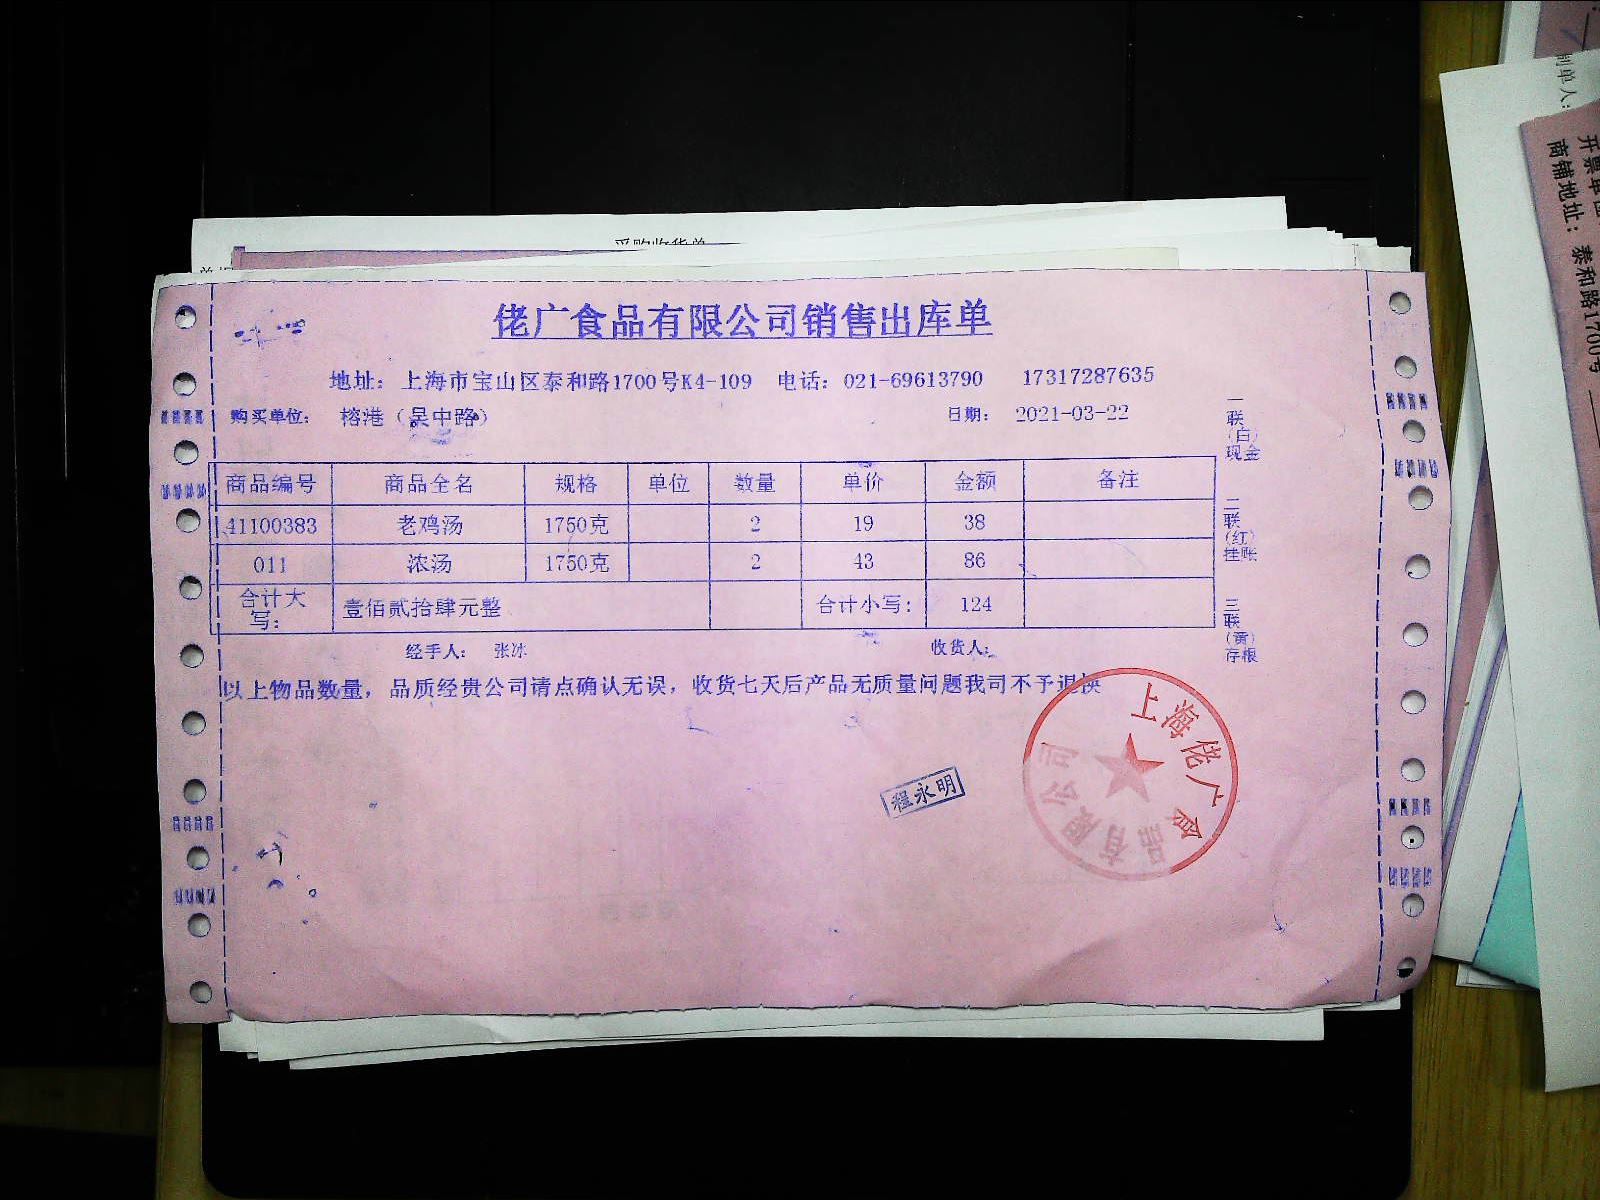 采购收货单
佬广食品有限公司销售出库单
地址：上海市宝山区泰和路1700号K4-109 电话：021-69613790 17317287635
购买单位： 榕港（吴中路） 日期： 2021-03-22
商品编号 商品全名 规格 单位 数量 单价 金额 备注
41100383 老鸡汤 1750克 2 19 38
011 浓汤 1750克 2 43 86
合计大写： 壹佰贰拾肆元整 合计小写： 124
经手人： 张冰 收货人：
以上物品数量，品质经贵公司请点确认无误，收货七天后产品无质量问题我司不予退换
一联（白）现金
二联（红）挂账
三联（黄）存根
程永明
上海佬广食品有限公司
制单人：
商铺地址： 泰和路1700号